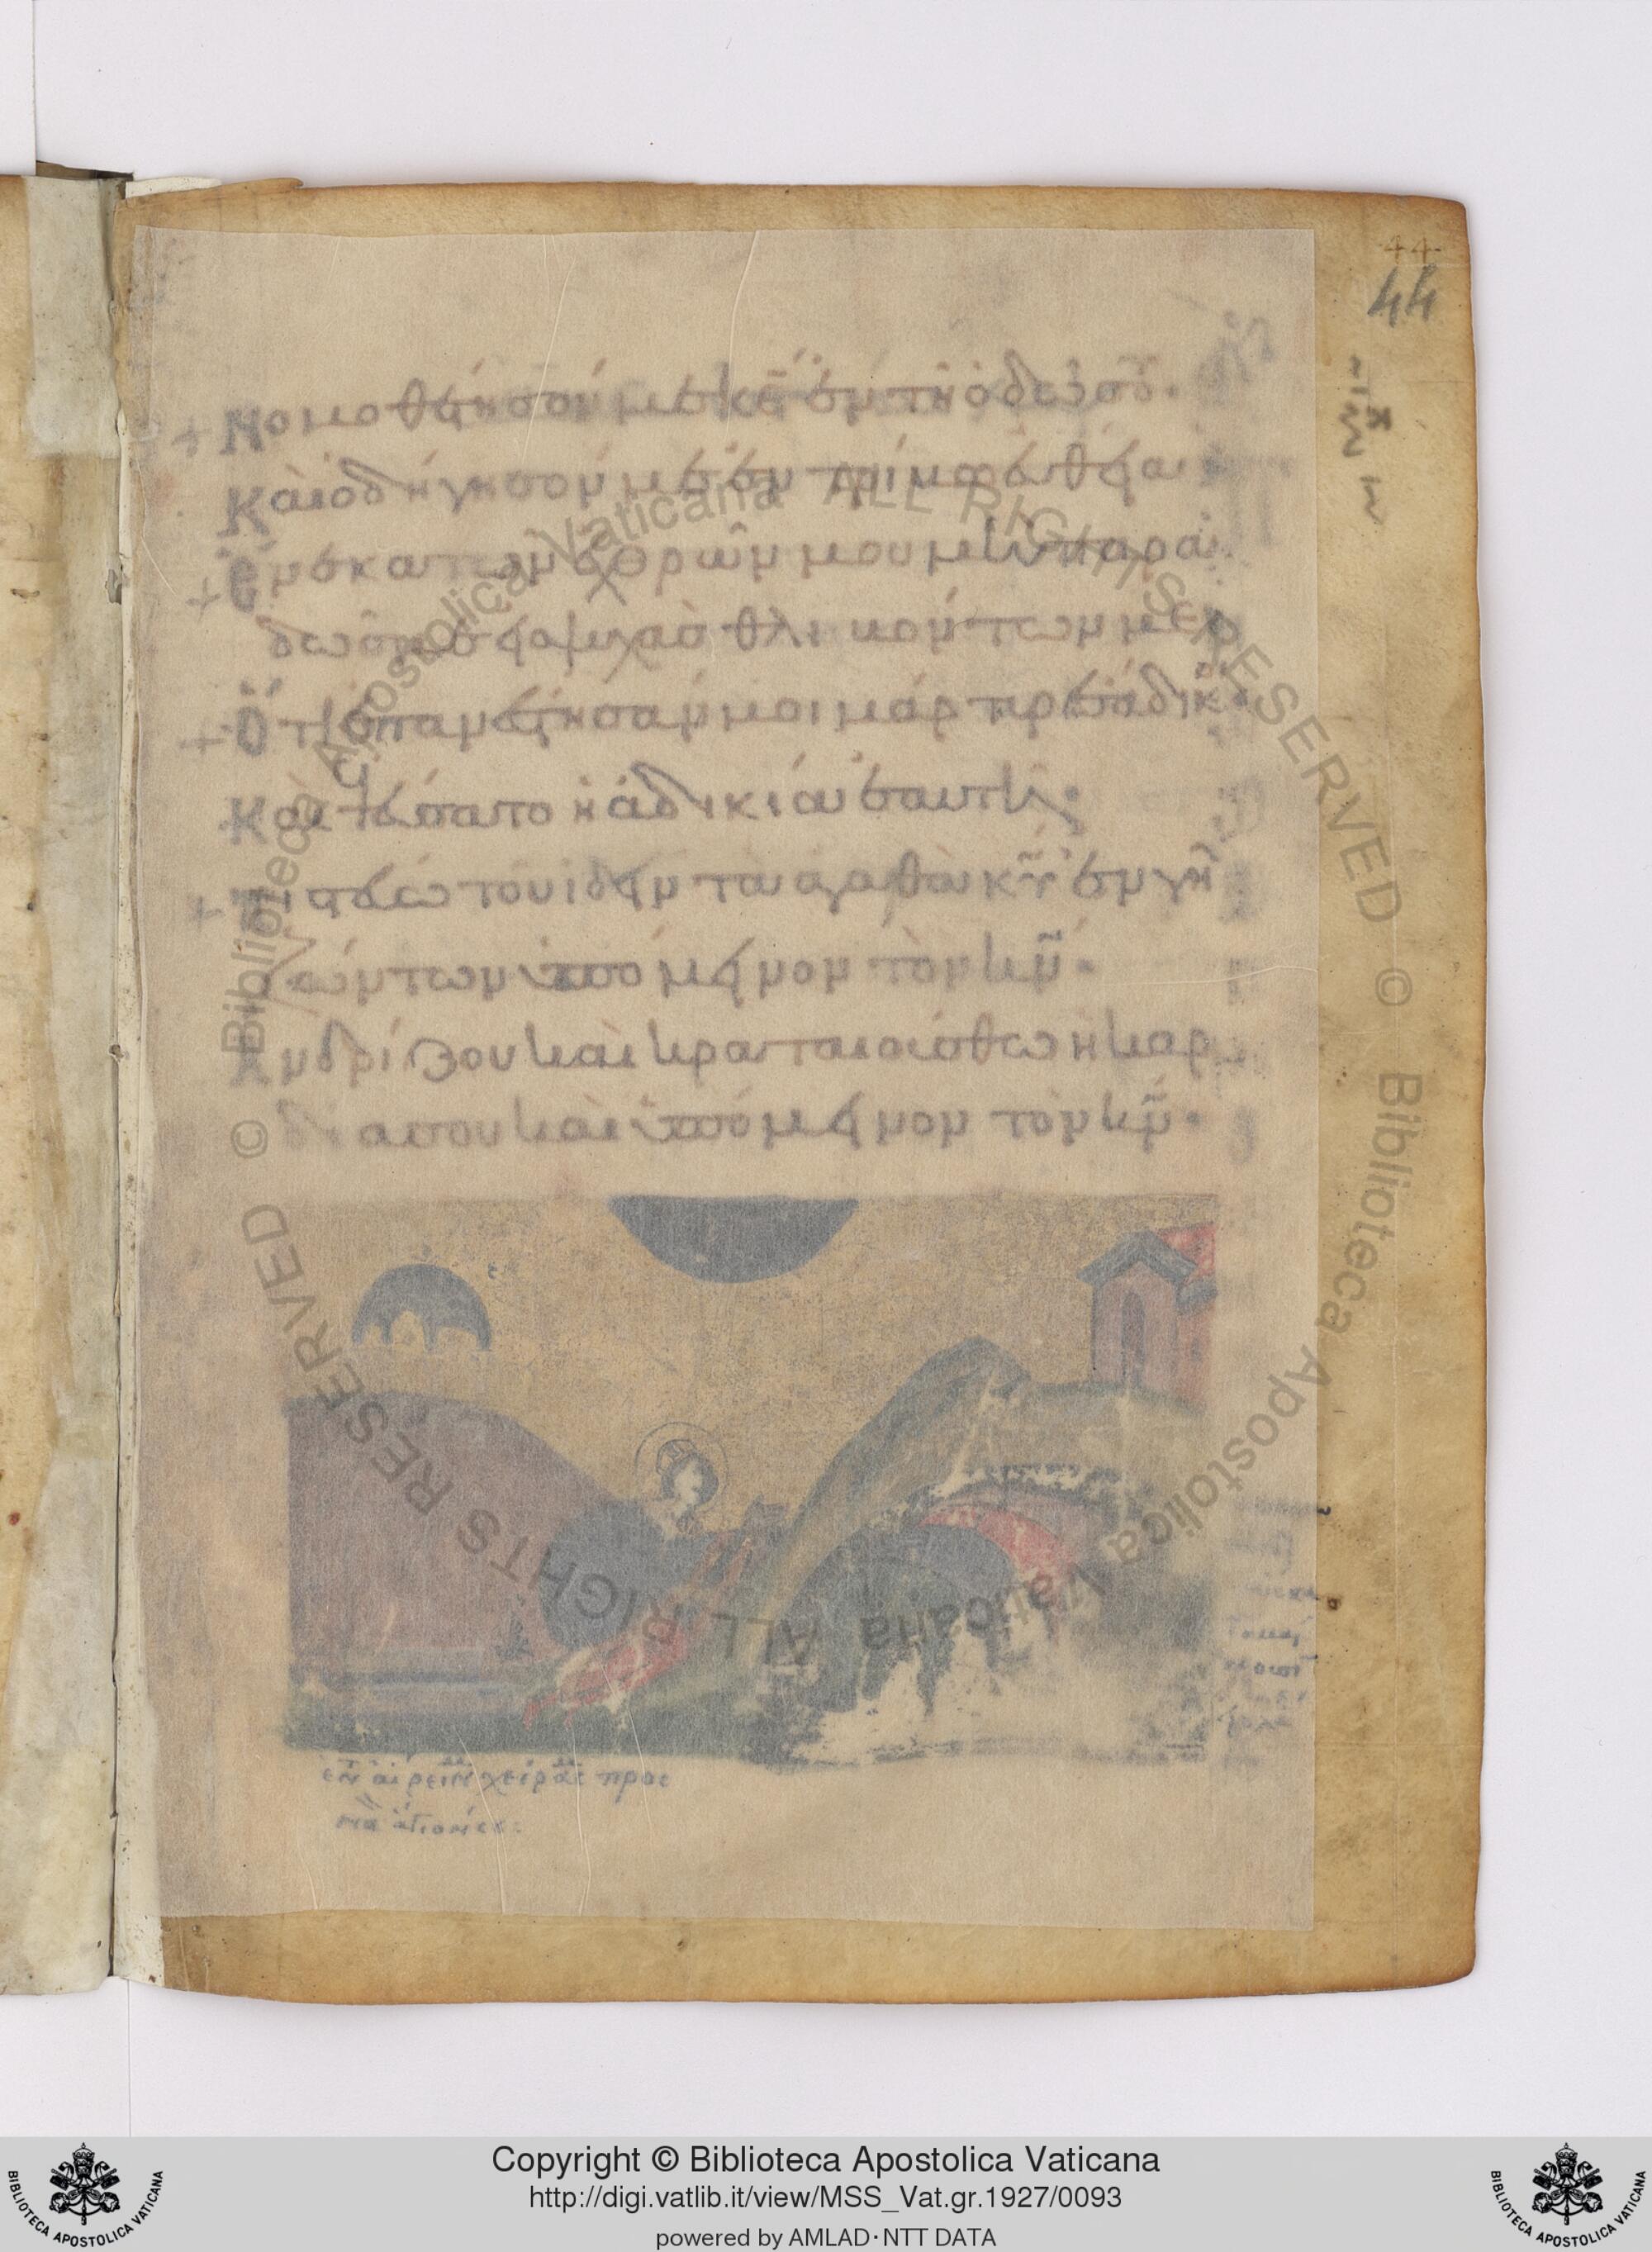 44
44
Νομοθέτησόν με κ̅ε̅ ἐν τῆ ὁδῶ σου·
Καὶ ὁδήγησόν με ἐν τρίβω εὐθεία
Ἕνεκα τῶν ἐχθρῶν μου μὴ παρα
δῶς με εἰς ψυχὰς θλιβόντων με·
Ὅτι ἐπανέστησάν μοι μάρτυρες ἄδικ
Καὶ ἐψεύσατο ἡ ἀδικία ἑαυτῆ·
πιστεύω τοῦ ἰδεῖν τὰ ἀγαθὰ κ̅υ̅ ἐν γῆ
ζώντων ὑπόμεινον τὸν κ̅ν̅·
Ἀνδρίζου καὶ κραταιούσθω ἡ καρ
δία σου καὶ ὑπόμεινον τὸν κ̅ν̅·
χεῖρας προς
© Biblioteca Apostolica Vaticana ALL RIGHTS RESERVED
© Biblioteca Apostolica Vaticana ALL RIGHTS RESERVED
Copyright © Biblioteca Apostolica Vaticana
http://digi.vatlib.it/view/MSS_Vat.gr.1927/0093
powered by AMLAD·NTT DATA
BIBLIOTECA APOSTOLICA VATICANA
BIBLIOTECA APOSTOLICA VATICANA